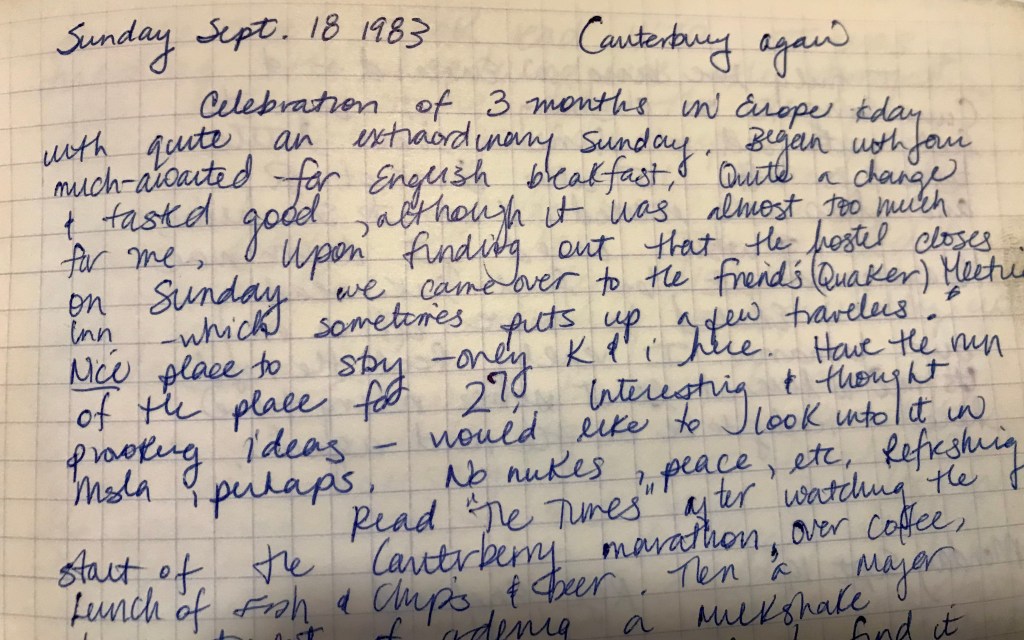 Sunday Sept. 18 1983 Canterbury again
Celebration of 3 months in Europe today
with quite an extraordinary Sunday. Began with our
much-awaited-for English breakfast, Quite a change
& tasted good, although it was almost too much
for me, Upon finding out that the hostel closes
on Sunday we came over to the Friend's (Quaker)
Inn - which sometimes puts up a few travelers.
Nice place to stay - only K & i here. Have the run
of the place for 2 Interesting & thought
provoking ideas - would like to look into it in
Msla, perhaps. No nukes, peace, etc, Refreshing
Read "The Times" after watching the
start of the Canterberry marathon, over coffee,
Lunch of Fish & Chips & beer. Then a major
of a milkshake
find it